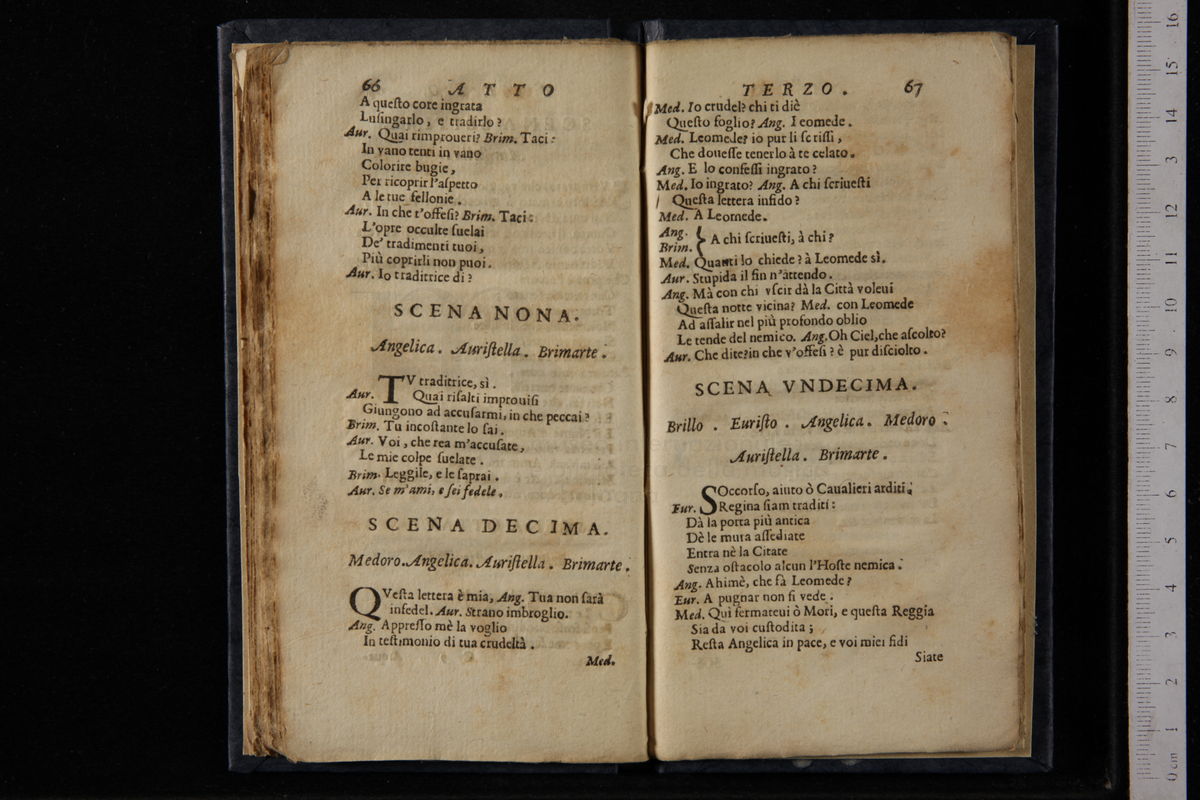 66 ATTO
A questo core ingrata
Lusingarlo, e tradirlo?
Aur. Quai rimproueri? Brim. Taci:
In vano tenti in vano
Colorire bugie,
Per ricoprir l'aspetto
A le tue fellonie.
Aur. In che t'offesi? Brim. Taci:
L'opre occulte suelai
De' tradimenti tuoi,
Più coprirli non puoi.
Aur. Io traditrice di?
SCENA NONA.
Angelica. Auristella. Brimarte.
TV traditrice, sì.
Aur. Quai risalti improuisi
Giungono ad accusarmi, in che peccai?
Brim. Tu incostante lo sai.
Aur. Voi, che rea m'accusate,
Le mie colpe suelate.
Brim. Leggile, e le saprai.
Aur. Se m'ami, e sei fedele,
SCENA DECIMA.
Medoro. Angelica. Auristella. Brimarte.
QVesta lettera è mia, Ang. Tua non sarà
infedel. Aur. Strano imbroglio.
Ang. Appresso mè la voglio
In testimonio di tua crudeltà.
Med.
TERZO. 67
Med. Io crudel? chi ti diè
Questo foglio? Ang. Leomede.
Med. Leomede? io pur li scrissi,
Che douesse tenerlo à te celato.
Ang. E lo confessi ingrato?
Med. Io ingrato? Ang. A chi scriuesti
Questa lettera infido?
Med. A Leomede.
Ang.
Brim. } A chi scriuesti, à chi?
Med. Quanti lo chiede? à Leomede sì.
Aur. Stupida il fin n'attendo.
Ang. Mà con chi vscir dà la Città voleui
Questa notte vicina? Med. con Leomede
Ad assalir nel più profondo oblio
Le tende del nemico. Ang. Oh Ciel, che ascolto?
Aur. Che dite? in che v'offesi? è pur disciolto.
SCENA VNDECIMA.
Brillo. Euristo. Angelica. Medoro.
Auristella. Brimarte.
SOccorso, aiuto ò Caualieri arditi.
Eur. Regina siam traditi:
Dà la porta più antica
Dè le mura assediate
Entra nè la Citate
Senza ostacolo alcun l'Hoste nemica.
Ang. Ahimè, che fà Leomede?
Eur. A pugnar non si vede.
Med. Qui fermateui ò Mori, e questa Reggia
Sia da voi custodita;
Resta Angelica in pace, e voi miei fidi
Siate
0 cm 1 2 3 4 5 6 7 8 9 10 11 12 13 14 15 16